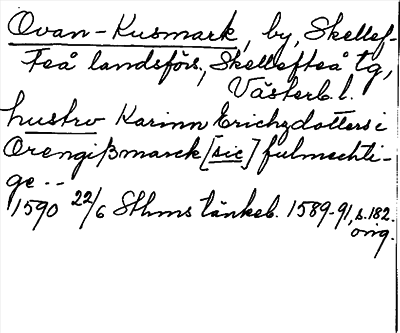 Ovan-Kusmark, by, Skellef-
teå landsförs., Skellefteå tg,
Västerb. l.
hustro Karinn Erichzdotters i
Orengißmarck [sic] fulmechti-
ge --
1590 22/6 Sthms tänkeb. 1589-91, s. 182.
orig.